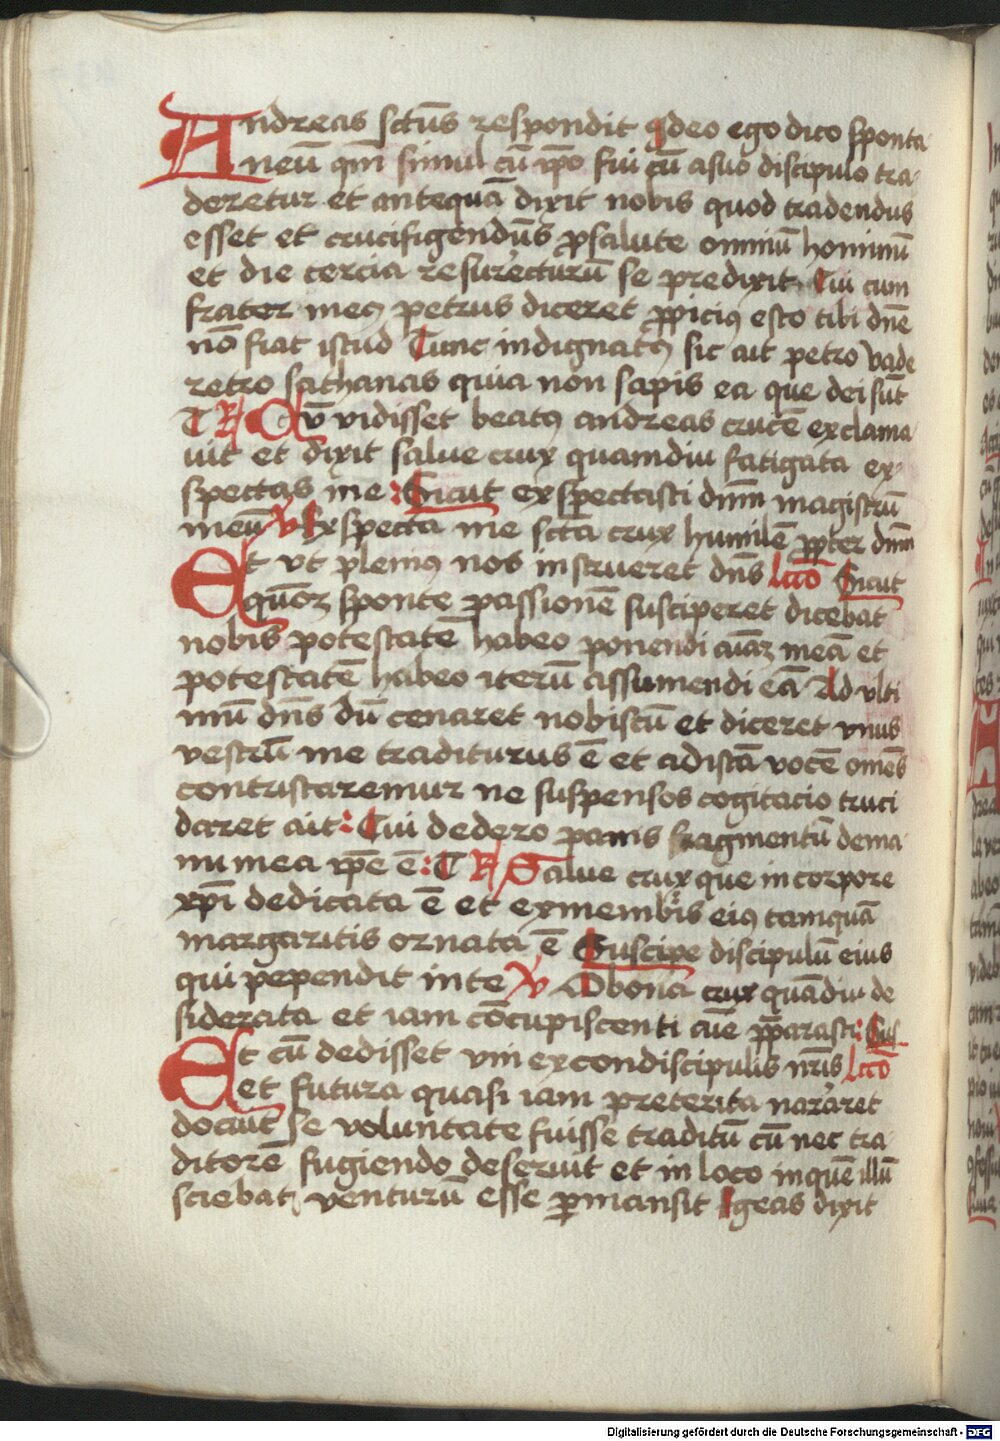 Andreas sct̄us respondit qdeo ego dico sponta
neū qm̄ simul cū ip̄o fui cū a suo discipulo tra
deretur et antequā dixit nobis quod tradendus
esset et crucifigendus ꝓ salute omniū hominū
et die tercia resurrecturū se predixit Cui cum
frater meꝯ petrus diceret ꝓpiciꝯ esto tibi dn̄e
nō fiat istud Tunc indignatꝯ sic ait petro vade
retro sathanas quia non sapis ea que dei sūt
T R Cū vidisset beatꝯ andreas crucē exclama
uit et dixit salue crux quamdiu fatigata ex
spectas me : Sicut exspectasti dnm̄ magistrū
meū v Exspecta me sctā crux humilē ꝓpter dnm̄
Et vt pleniꝯ nos instrueret dn̄s lcc̄o Sicut
quoꝫ sponte passionē susciperet dicebat
nobis potestatē habeo ponendi aīaꝫ meā et
potestatē habeo iterū assumendi eā Ad vlti
mū dn̄s dū cenaret nobiscū et diceret vnus
vestrū me traditurus ē et ad istā vocē omēs
contristaremur ne suspensos cogitacio truci
daret ait : Cui dedero panis fragmentū de ma
nu mea ip̄e ē : T R Salue crux que in corpore
xp̄i dedicata ē et ex membris eiꝯ tamquā
margaritis ornata ē Suscipe discipulū eius
qui pependit in te v O bona crux quādiu de
siderata et iam cōcupiscenti aīe p̄parasti : Sus
Et cū dedisset vni ex condiscipulis nr̄is lcc̄o
et futura quasi iam preterita narraret
docuit se voluntate fuisse traditū cū nec tra
ditorē fugiendo deseruit et in loco in quē illū
sciebat venturū esse ꝑmansit Egeas dixit
Digitalisierung gefördert durch die Deutsche Forschungsgemeinschaft - DFG